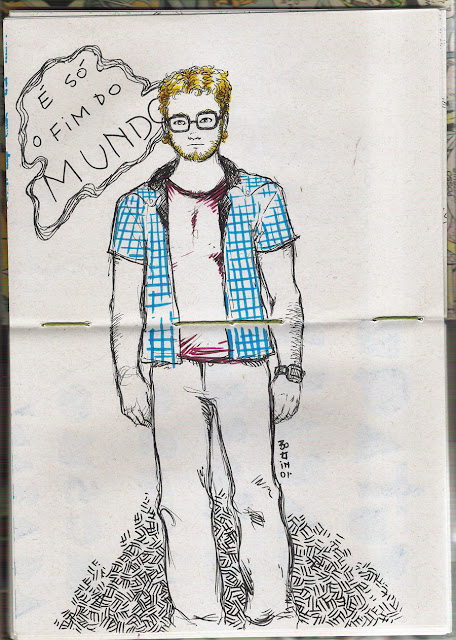 É SÓ
O FIM DO
MUNDO